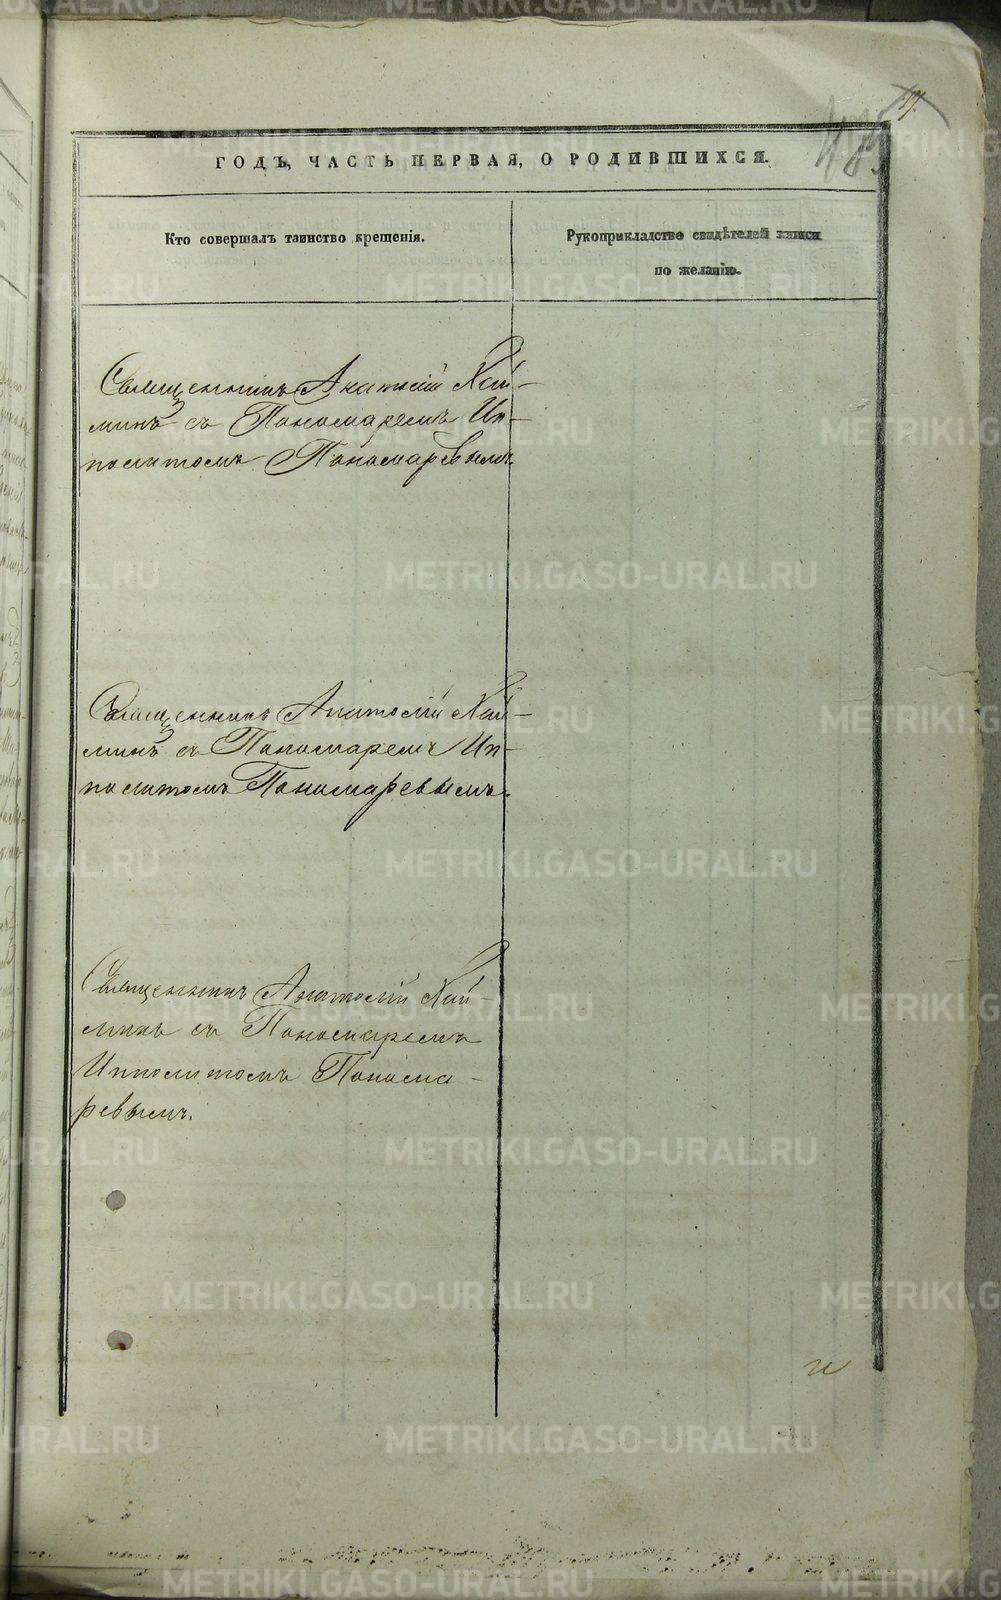 ГОДЪ, ЧАСТЬ ПЕРВАЯ, О РОДИВШИХСЯ.
Кто совершалъ таинство крещенія.
Рукоприкладство свидѣтелей записи
по желанію.
Священникъ Анатолій Хай-
минъ съ Пономаремъ Ип-
политомъ Пономаревымъ.
Священникъ Анатолій Хай-
минъ съ Пономаремъ Ип-
политомъ Пономаревымъ.
Священникъ Анатолій Хай-
минъ съ Пономаремъ
Ипполитомъ Понома-
ревымъ.
METRIKI.GASO-URAL.RU